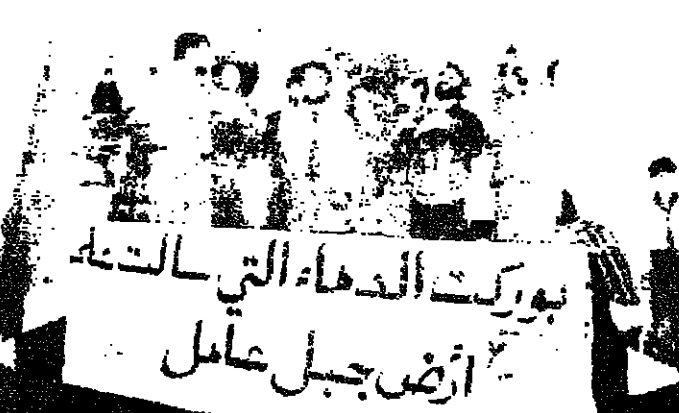 بوركت الدماء التي سالت على
ارض جبل عامل